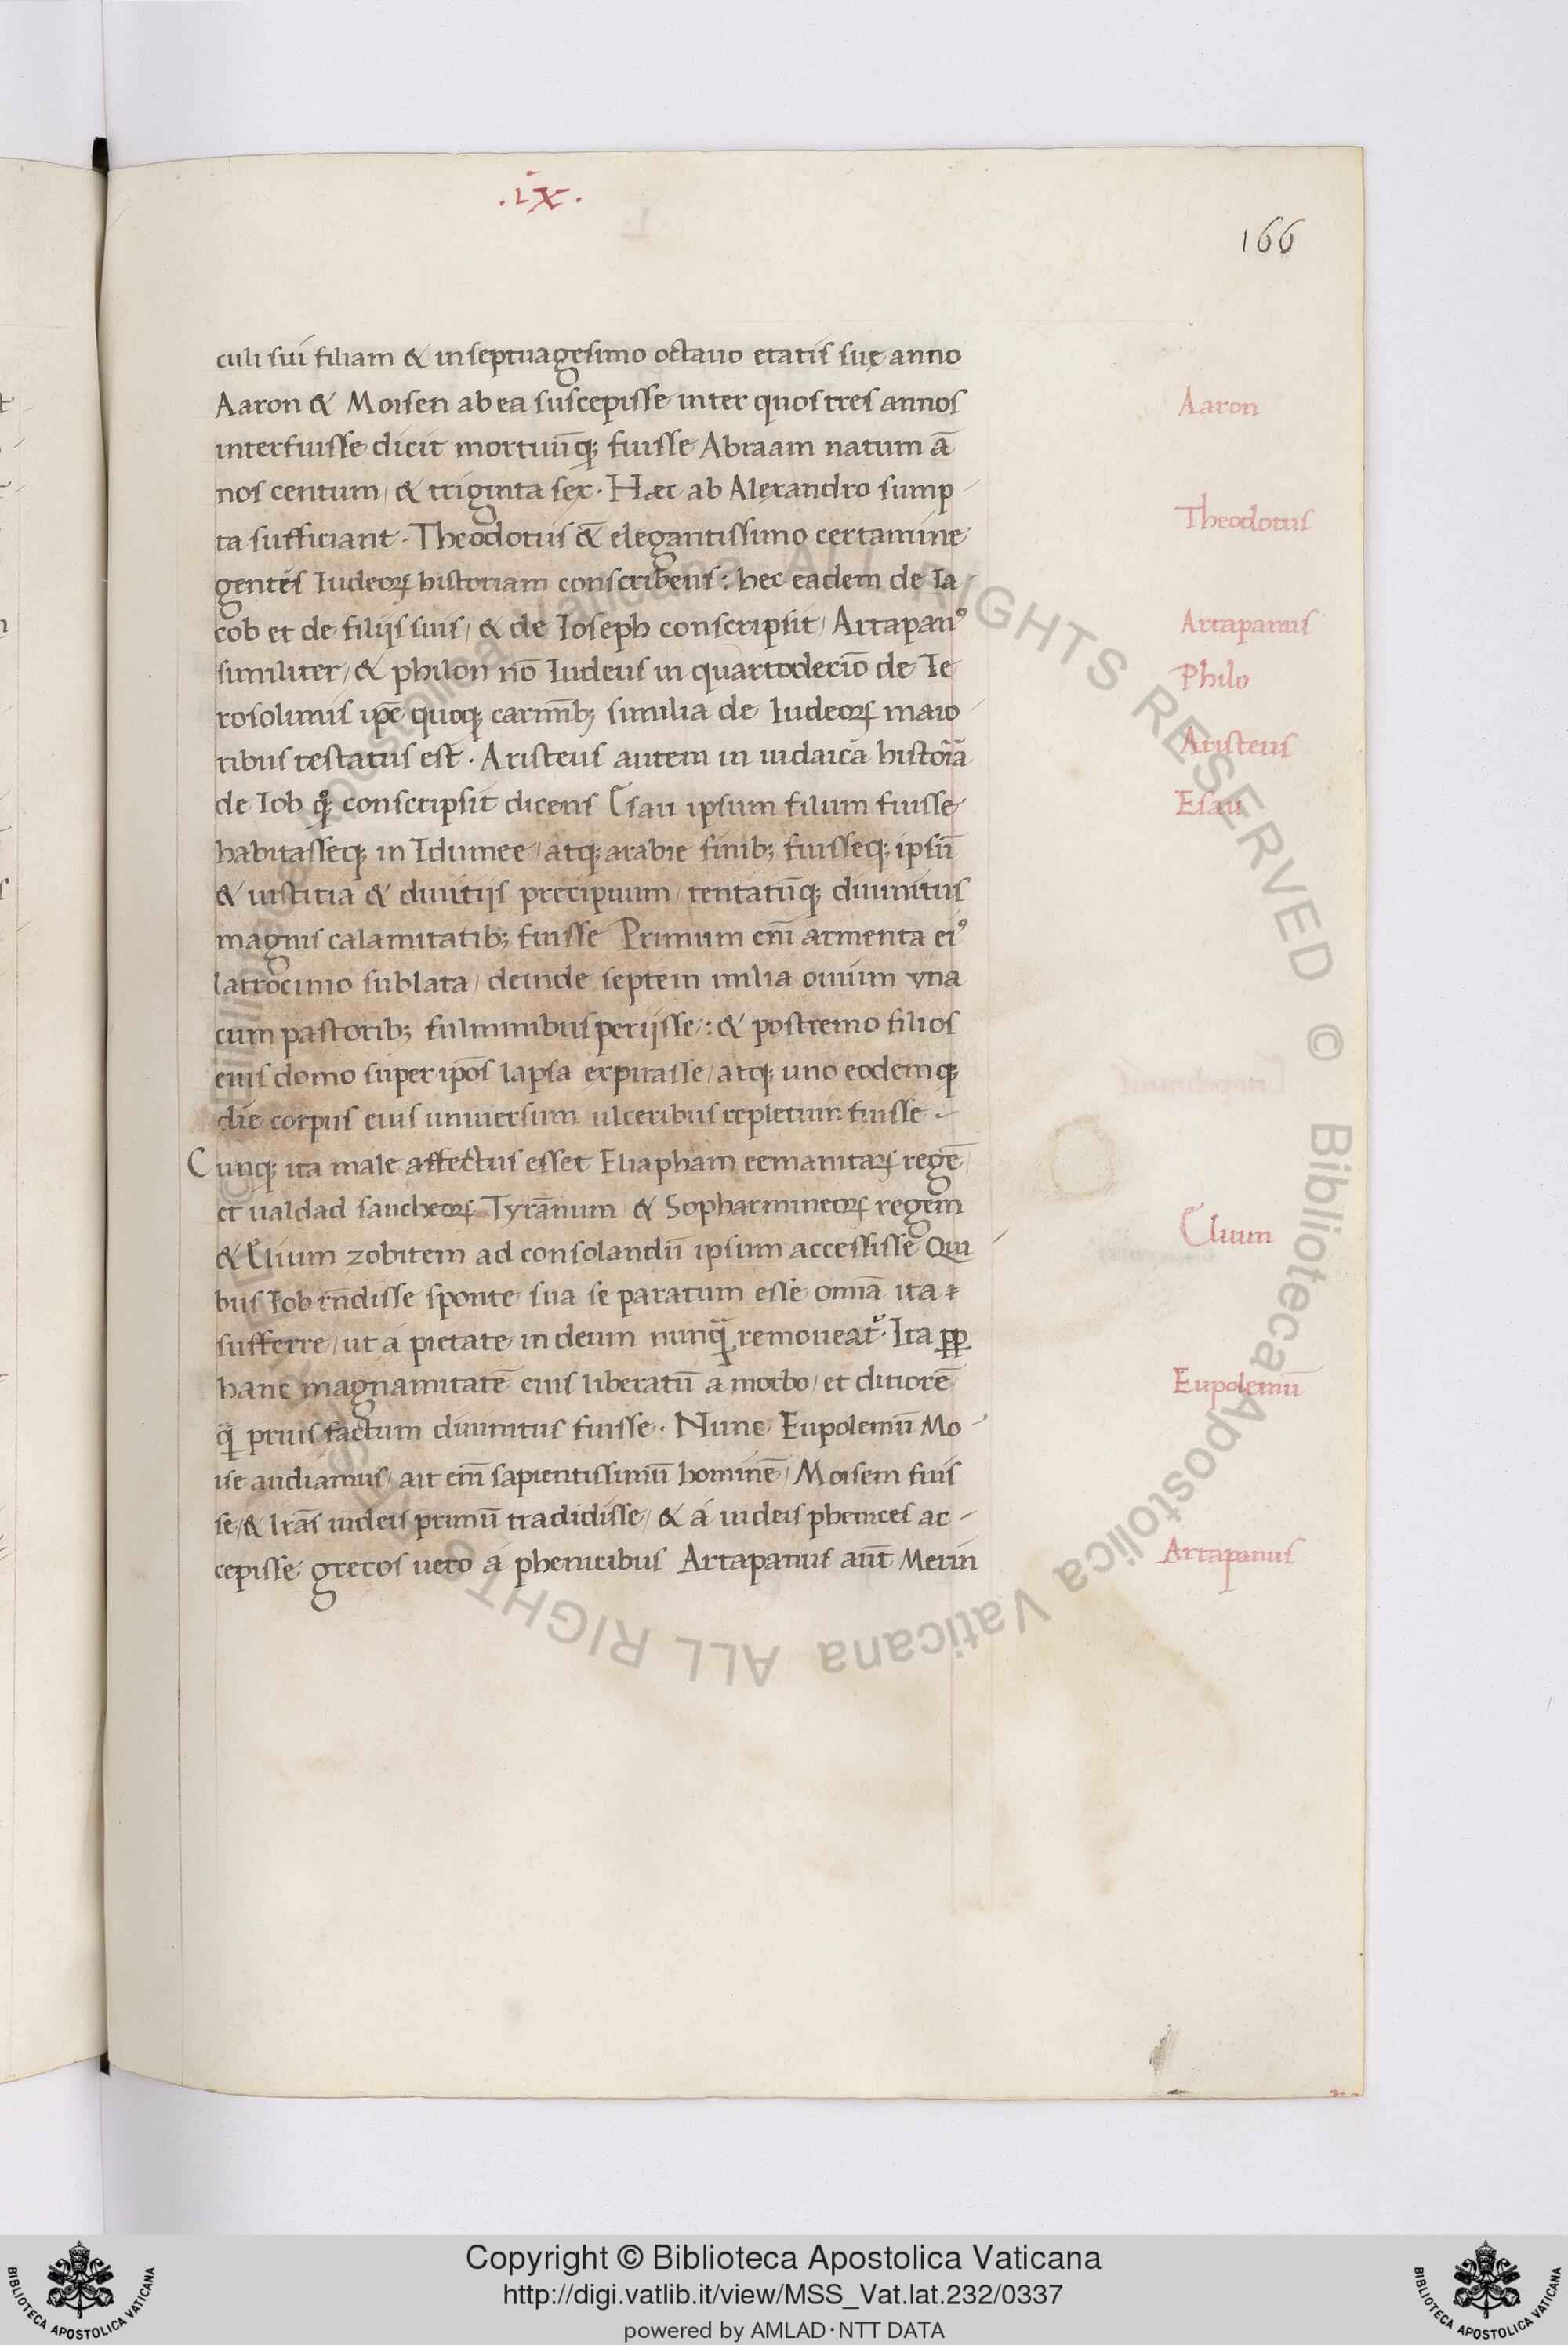 .ix.
166
culi sui filiam & in septuagesimo octauo etatis suę anno
Aaron & Moisen ab ea suscepisse inter quos tres annos
interfuisse dicit mortuūq; fuisse Abraam natum ā
nos centum / & triginta sex · Hæc ab Alexandro sump
ta sufficiant · Theodotus & elegantissimo certamine
gentes Iudeoꝝ historiam conscribens : hec eadem de Ia
cob et de filijs suis / & de Ioseph conscripsit / Artapanꝰ
similiter / & philon nō Iudeus in quartodecīo de Ie
rosolimis ip̄e quoq; carmīb; similia de Iudeoꝝ maio
ribus testatus est · Aristeus autem in iudaicā historiā
de Iob qͦꝗ conscripsit dicens Esau ipsum filium fuisse
habitasseq; in Idumee / atq; arabie finib; fuisseq; ipsū
& iustitia & diuitijs precipuum / tentatūq; diuinitus
magnis calamitatib; fuisse Primum enī armenta eiꝰ
latrocinio sublata / deinde septem milia ouium vna
cum pastorib; fulminibus perijsse : & postremo filios
eius domo super ip̄os lapsa expirasse / atq; uno eodemq;
die corpus eius uniuersum ulceribus repletum fuisse ·
Cunq; ita male affectus esset Eliapham eemanitaꝝ regē
et ualdad saucheoꝝ Tyrānum & Sopharmineoꝝ regem
& Elium zobitem ad consolandū ipsum accessisse Qui
bus Iob rn̄disse sponte sua se paratum esse omīa ita
sufferre / ut á pietate in deum nunqᷓ remoueat᷑. Ita ꝓp
hanc magnamitatē eius liberatū a morbo / et ditiorē
qᷓ prius factum diuinitus fuisse · Nunc Eupolemū Mo
ise audiamus / ait enī sapientissimū hominē / Moisem fuis
se / & lr̄as iudeis primū tradidisse / & á iudeis phenices ac
cepisse grecos uero á phenicibus Artapanus aūt Merin
Aaron
Theodotus
Artapanus
Philo
Aristeus
Esau
Elium
Eupolemū
Artapanus
© Biblioteca Apostolica Vaticana ALL RIGHTS RESERVED © Biblioteca Apostolica Vaticana ALL RIGHTS
Copyright © Biblioteca Apostolica Vaticana
http://digi.vatlib.it/view/MSS_Vat.lat.232/0337
powered by AMLAD·NTT DATA
BIBLIOTECA APOSTOLICA VATICANA
BIBLIOTECA APOSTOLICA VATICANA